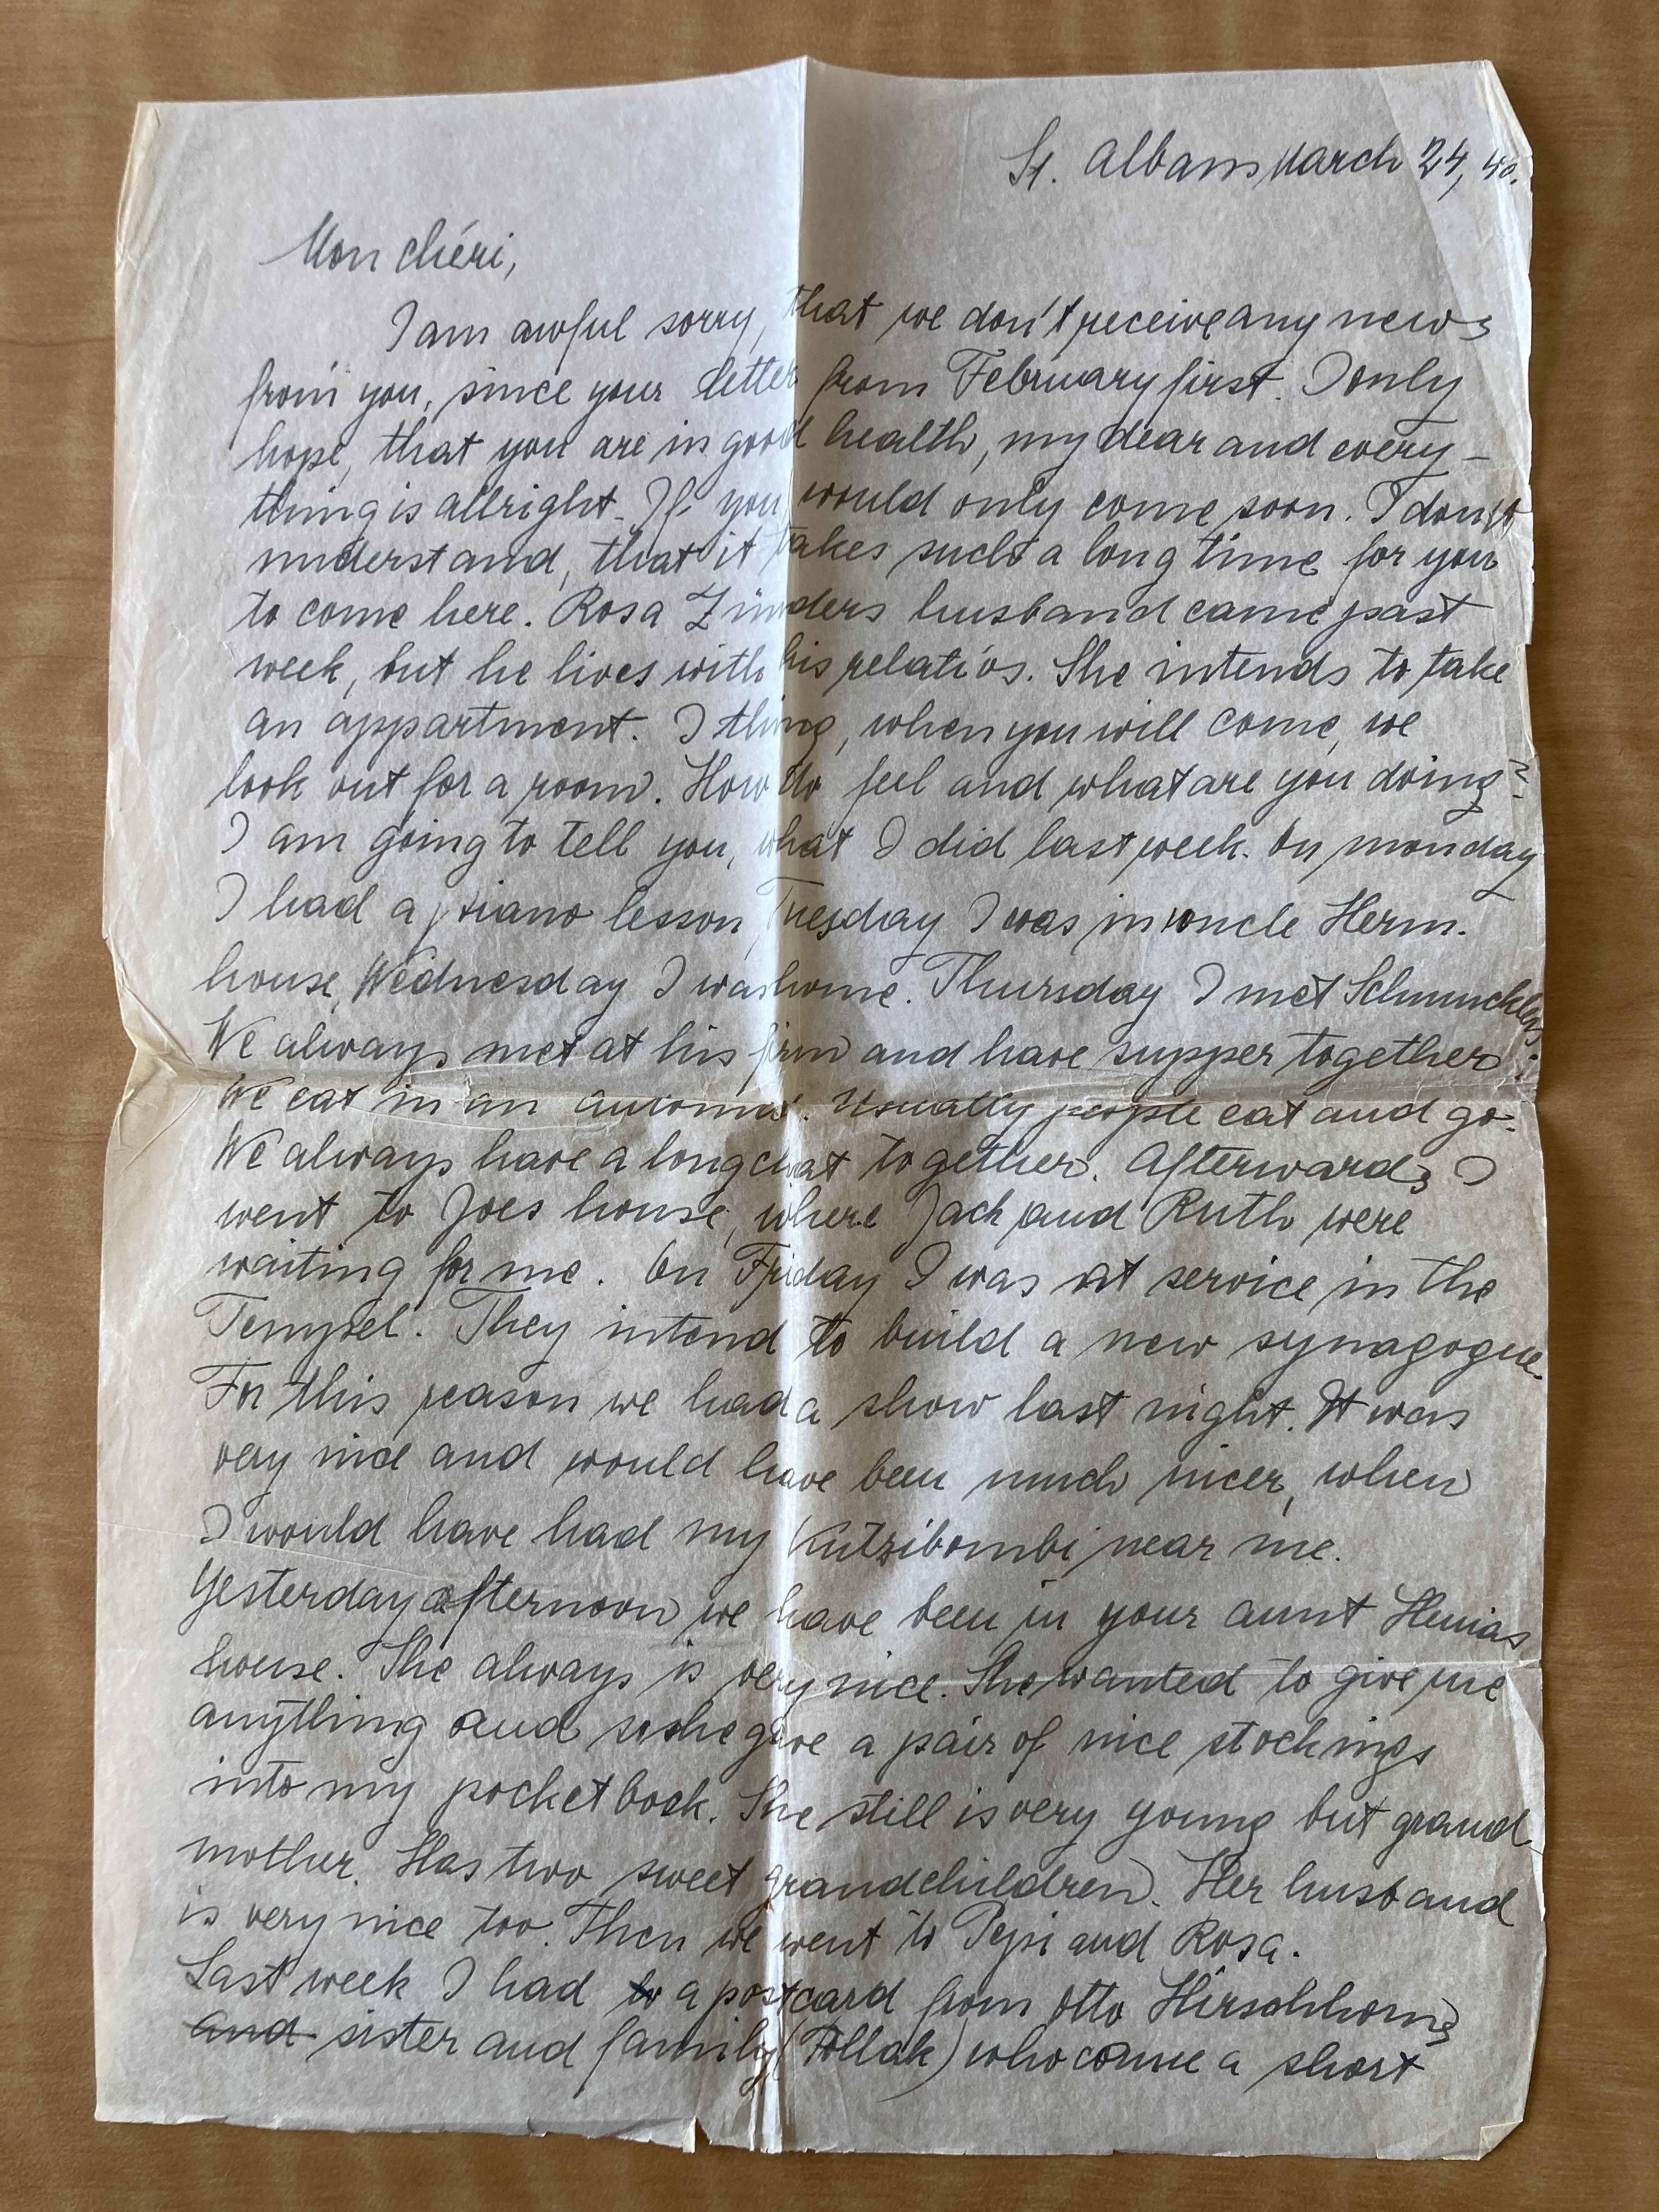 St. Albans March 24, 40.
Mon chéri,
I am awful sorry, that we don't receive any news
from you, since your letter from February first. I only
hope, that you are in good health, my dear and every-
thing is allright. If you would only come soon. I don't
understand, that it takes such a long time for you
to come here. Rosa Zünders husband came past
week, but he lives with his relatios. She intends to take
an appartment. I thing, when you will come, we
look out for a room. How do feel and what are you doing?
I am going to tell you, what I did last week. On monday
I had a piano lesson, Tuesday I was in uncle Herm.
house, Wednesday I was home. Thursday I met
We always met at his firm and have supper together.
We eat in an automat. Usually people eat and go.
We always have a long chat together. Afterwards I
went to Joes house, where Jack and Ruth were
waiting for me. On Friday I was at service in the
Tempel. They intend to build a new synagogue.
For this reason we had a show last night. It was
very nice and would have been much nicer, when
I would have had my Kutzibombi near me.
Yesterday afternoon we have been in your aunt Henias
house. She always is very nice. She wanted to give me
anything and so she gave a pair of nice stockings
into my pocketbook. She still is very young but grand-
mother. Has two sweet grandchildren. Her husband
is very nice too. Then we went to Pepi and Rosa.
Last week I had a postcard from Otto Hirschhorns
and sister and family (Pollak) who came a short